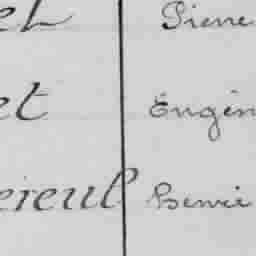 et Pierre
et Eugèn
ereul Henri